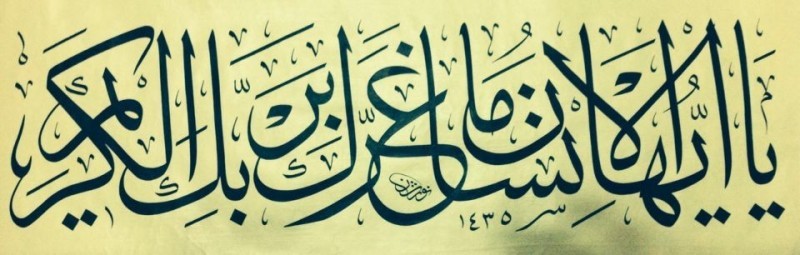 يا أيها الإنسان ما غرك بربك الكريم
١٤٣٥